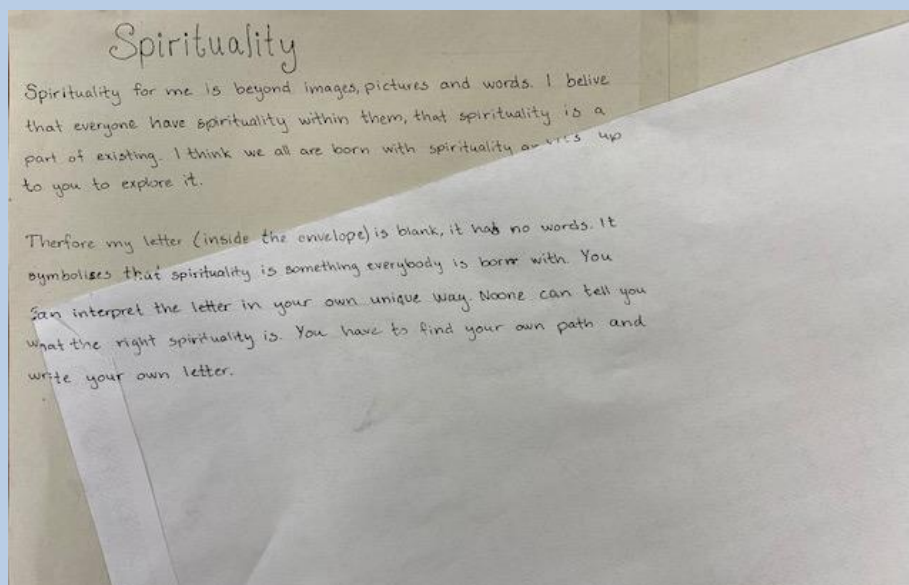 Spirituality
Spirituality for me is beyond images, pictures and words. I belive
that everyone have spirituality within them, that spirituality is a
part of existing. I think we all are born with spirituality up
to you to explore it.
Therfore my letter (inside the envelope) is blank, it has no words. It
symbolises that spirituality is something everybody is born with. You
can interpret the letter in your own unique way. Noone can tell you
what the right spirituality is. You have to find your own path and
write your own letter.